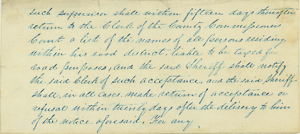 Such supervisor shall within fifteen days thereafter
return to the Clerk of the County Commissioners
Court a list of the names of all persons residing
within his road district, liable to be taxed for
road purposes, and the said Sheriff shall notify
the said Clerk of such acceptance, and the said Sheriff
shall, in all cases, make return of acceptance or
refusal within twenty days after the delivery to him
of the notice aforesaid. For any